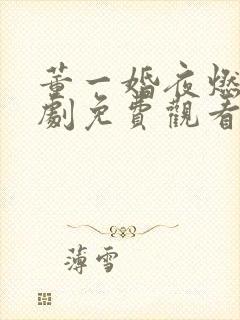 蓄一婚夜燃
劇免費觀看
薄雪